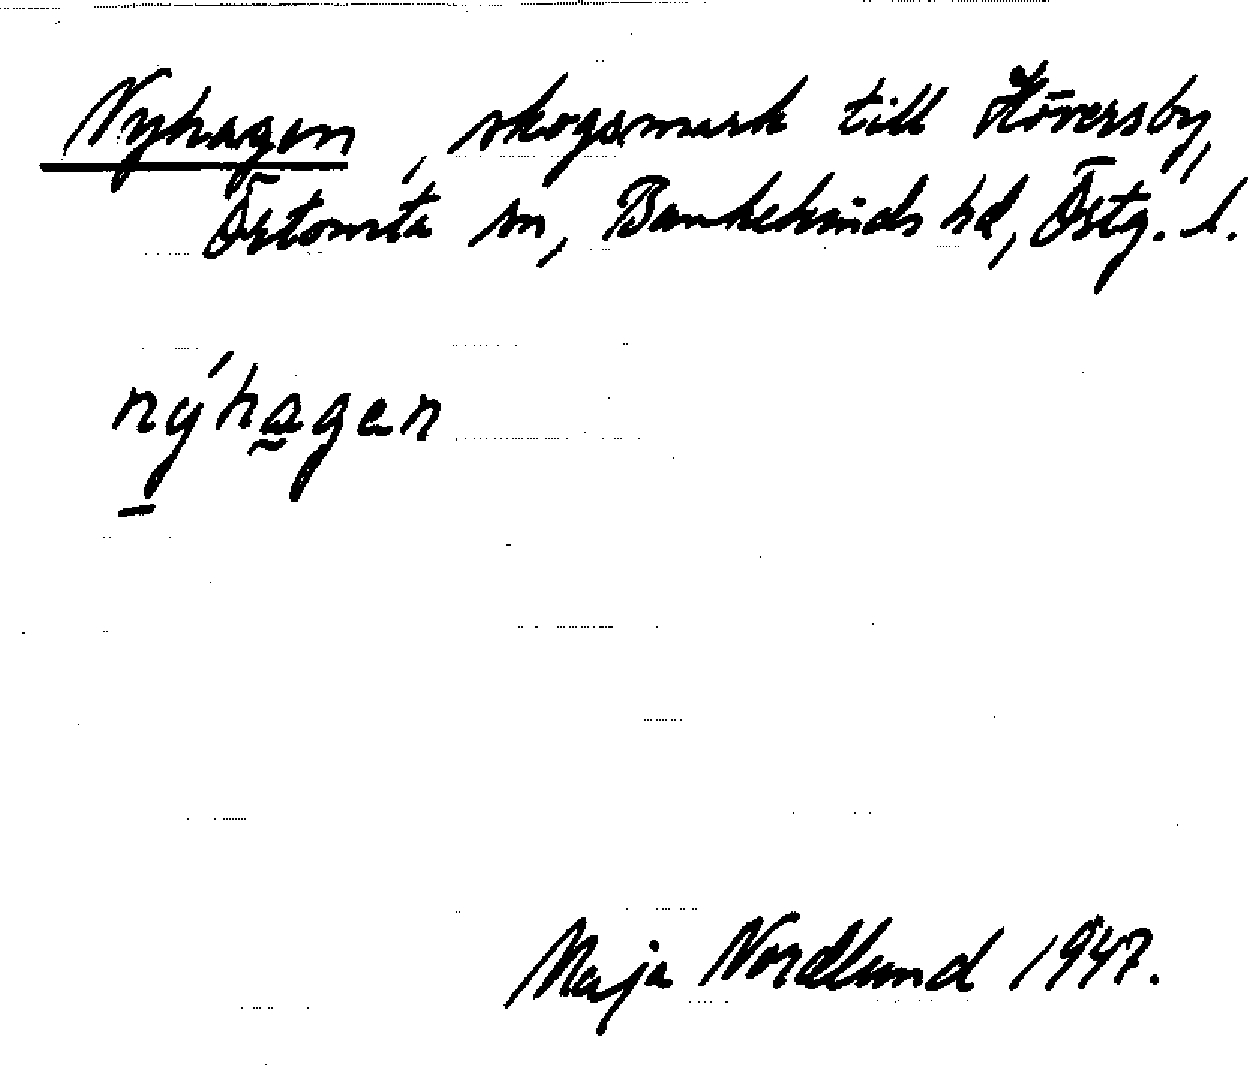 Nyhagen, skogsmark till Höversby,
Östomta sn, Bankekinds hd, Östg. l.
nýhagen
Maja Nordlund 1947.